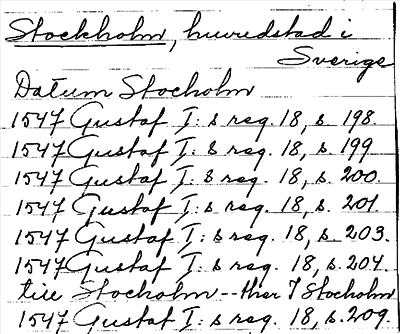 Stockholm, huvudstad i
Sverige
Datum Stocholm
1547 Gustaf I:s reg. 18, s. 198.
1547 Gustaf I:s reg. 18, s. 199
1547 Gustaf I:s reg. 18, s. 200.
1547 Gustaf I:s reg. 18, s. 201
1547 Gustaf I:s reg. 18, s. 203.
1547 Gustaf I:s reg. 18, s. 204.
till Stocholm -- ther I Stocholm
1547 Gustaf I:s reg. 18, s. 209.